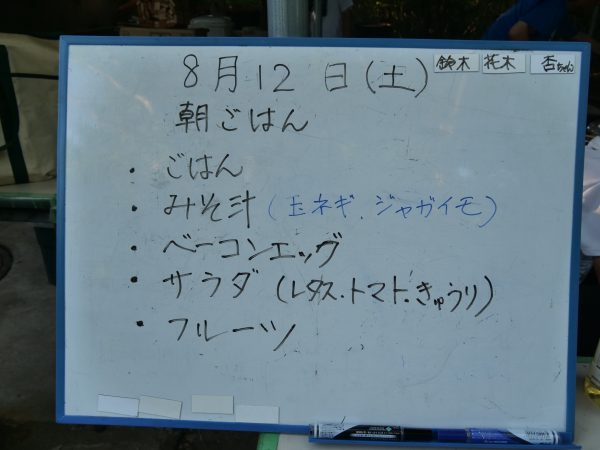 8月12日(土)
鈴木 花木 杏ちゃん
朝ごはん
・ごはん
・みそ汁(玉ネギ、ジャガイモ)
・ベーコンエッグ
・サラダ(レタス・トマト・きゅうり)
・フルーツ